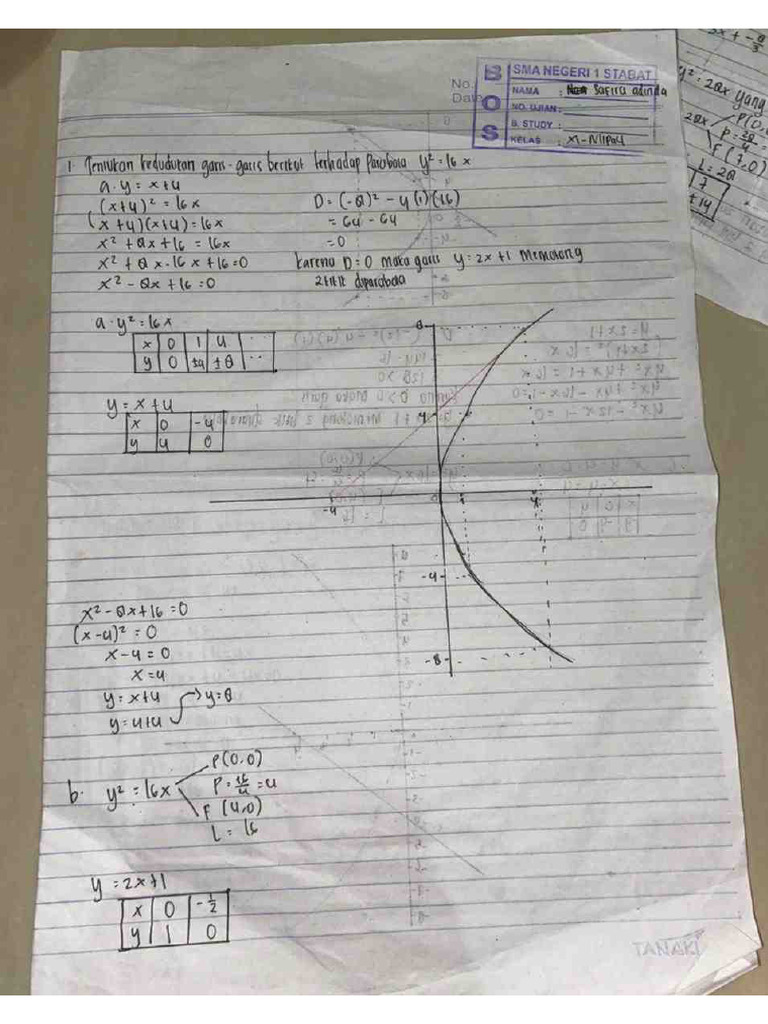 No.
Date
BOS
SMA NEGERI 1 STABAT
NAMA : Safira adinda
NO. UJIAN :
B. STUDY :
KELAS : XI-
1. Tentukan kedudukan garis-garis berikut terhadap Parabola y² = 16x
a. y = x+4
(x+4)² = 16x
(x+4)(x+4) = 16x
x² + 8x + 16 = 16x
x² + 8x - 16x + 16 = 0
x² - 8x + 16 = 0
D = (-8)² - 4(1)(16)
= 64 - 64
= 0
karena D = 0 maka garis y = 2x+1 Memotong
2 titik diparabola
a. y² = 16x
x 0 1 4 ..
y 0 ±4 ±8 ..
y = x+4
x 0 -4
y 4 0
8
4
0
-4
4
-4
-8
x² - 8x + 16 = 0
(x-4)² = 0
x-4 = 0
x = 4
y = x+4 → y = 8
y = 4+4
b. y² = 16x
P(0,0)
P = 16/4 = 4
F (4,0)
L = 16
y = 2x+1
x 0 -1/2
y 1 0
y² = 28x yang
P(0,0)
F(7,0)
L = 28
TANAKI